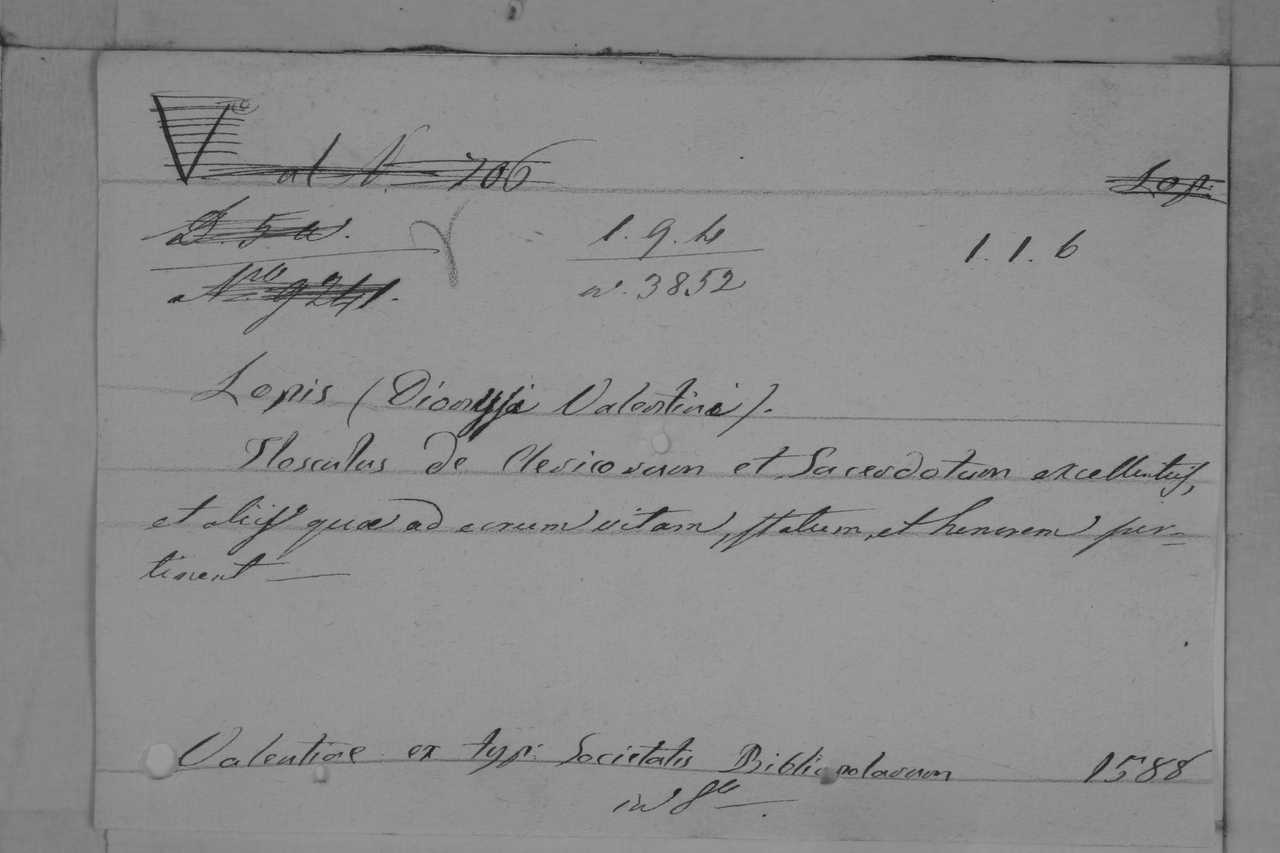 V.º al N. 706
Lop.
D. 5 a.
1. 9. 4
1. 1. 6
N.
n. 3852
Lopis (Dionysii Valentini).
Flosculus de Clericorum et Sacerdotum excellentiis,
et aliis quae ad eorum vitam, statum, et honorem per-
tinent —
Valentiae ex typ: Societatis Bibliopolarum 1588
in 8º —.